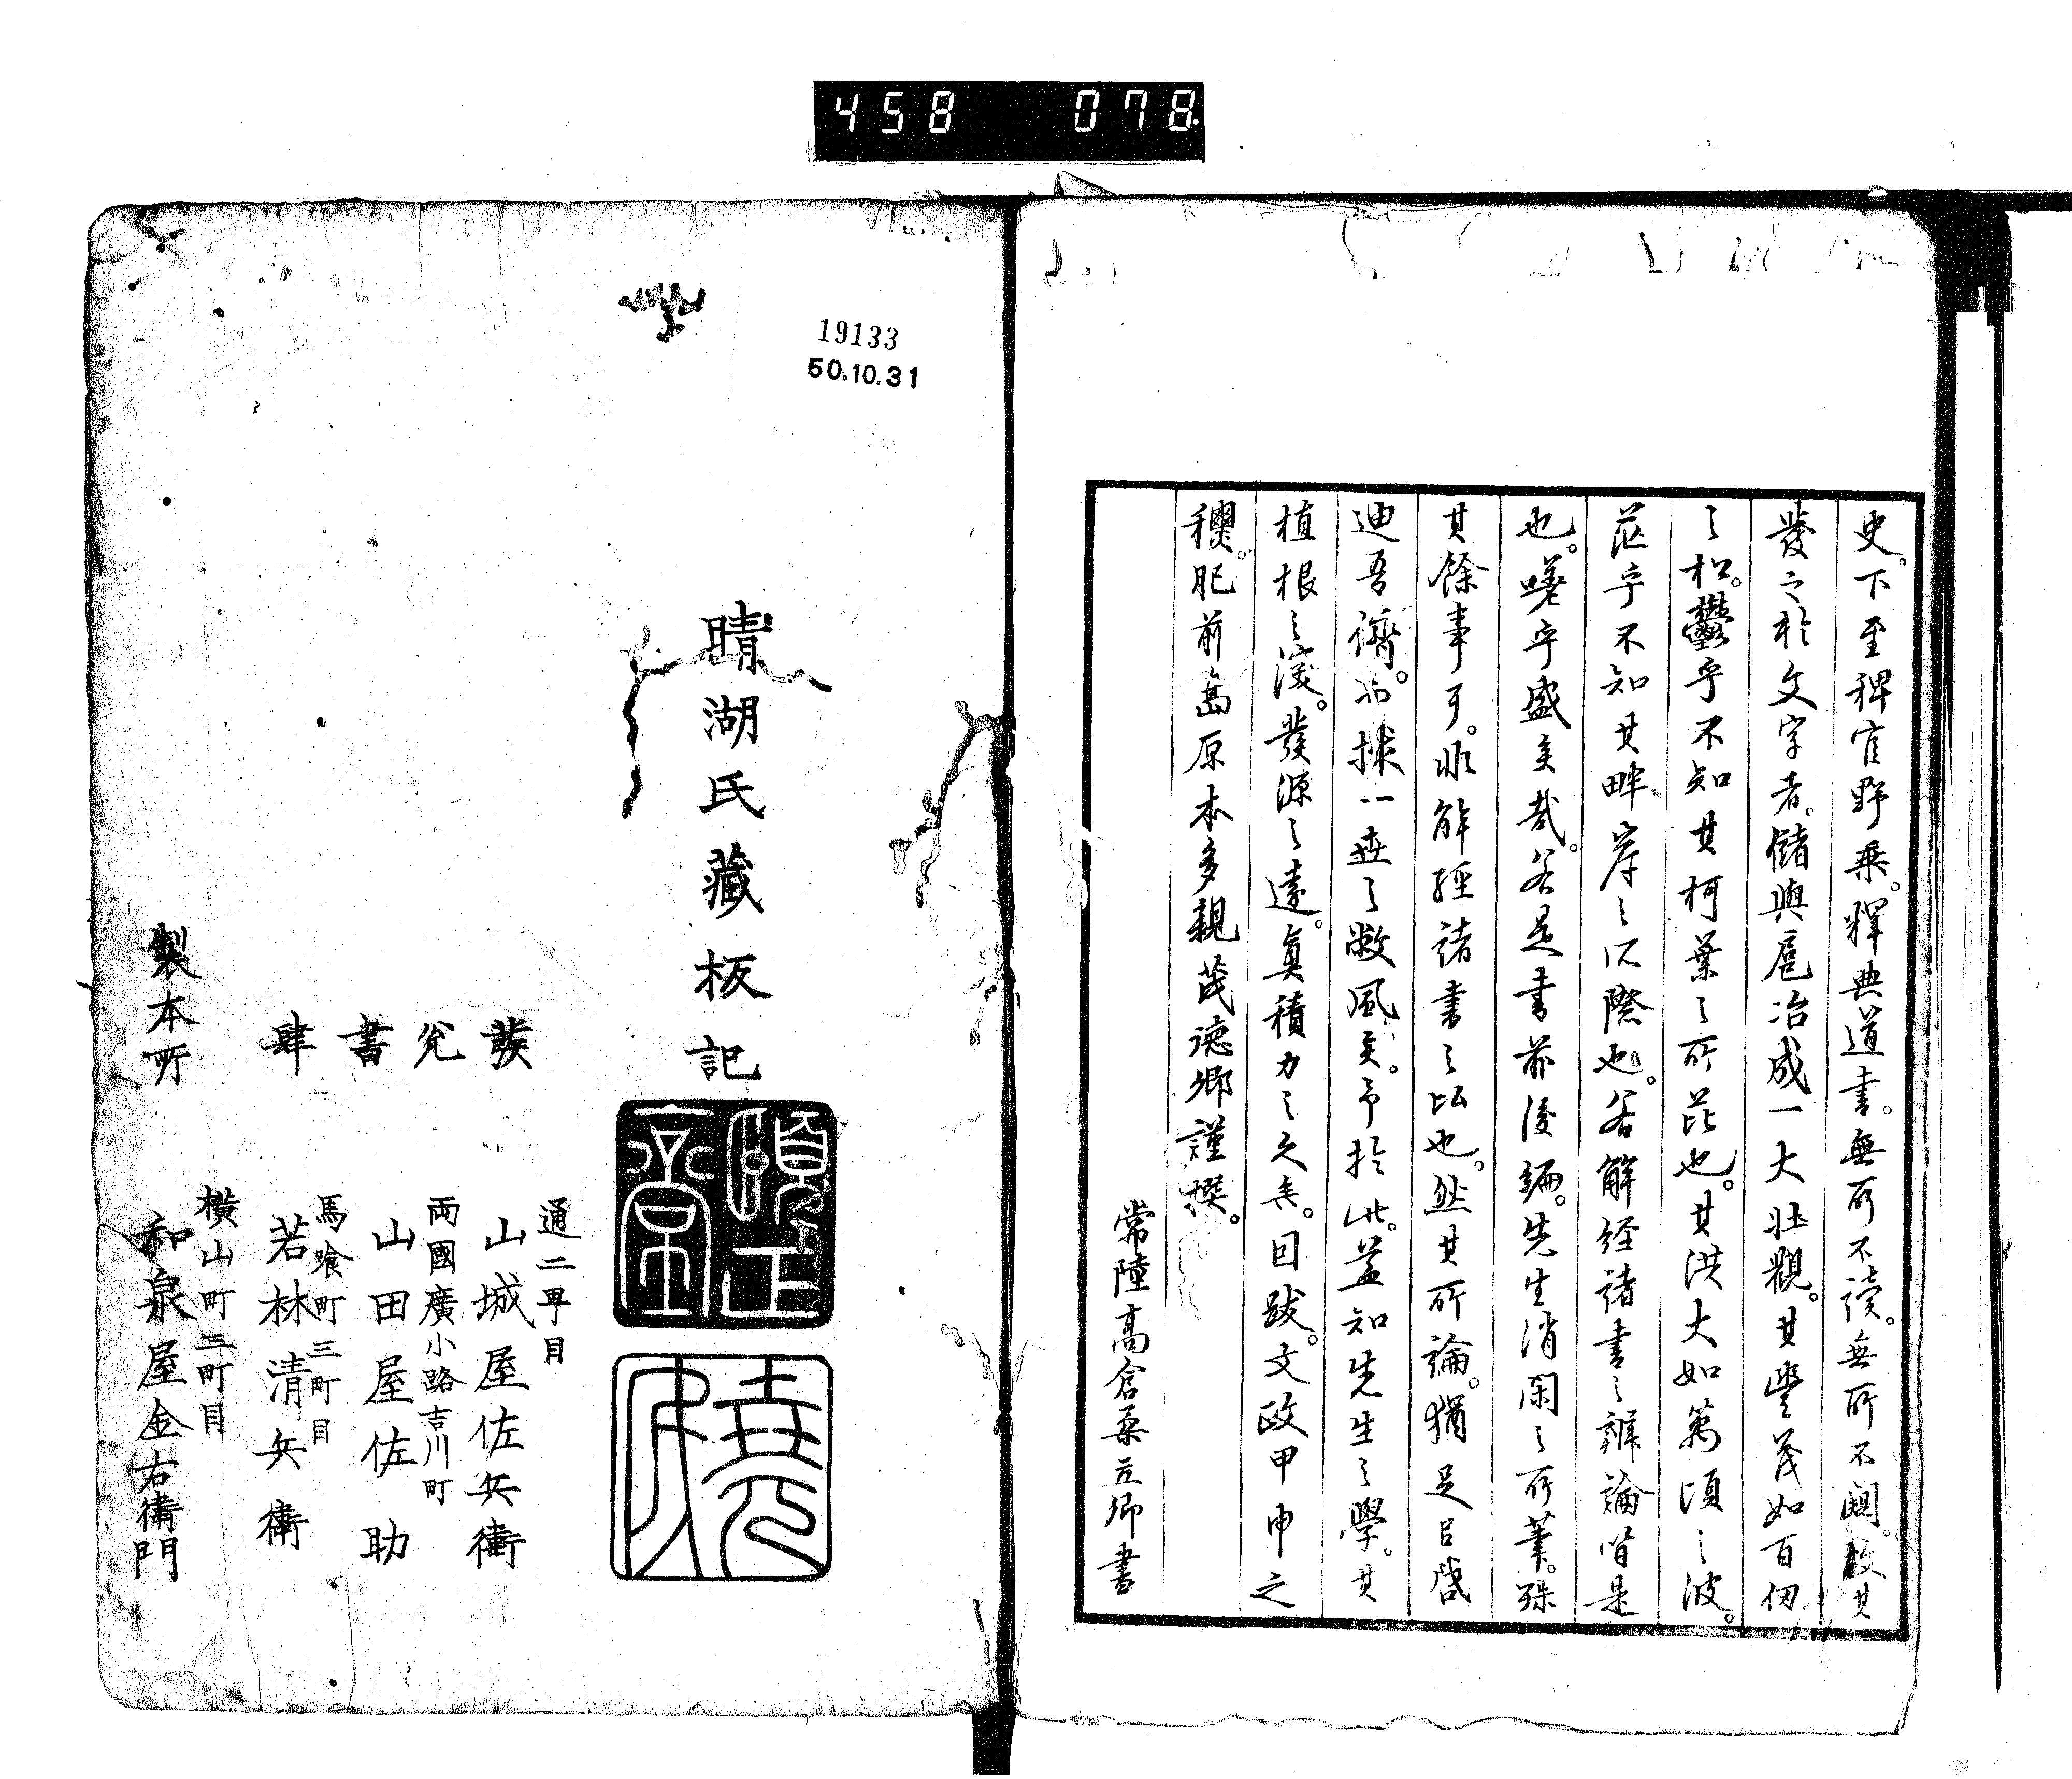 458 078
史。下至稗官野乗。釋典道書。無所不讀。無所不闚。故其
發之於文字者。儲與扈冶成一大壯觀。其豐茂如百仞
之松。鬱乎不知其柯葉之所芘也。其洪大如萬頃之波。
茫乎不知其畔岸之所際也。若解經諸書之辨論皆是
也。嗟乎盛矣哉。若是書前後編。先生消閑之所筆。殊
其餘事耳。非解經諸書之比也。然其所論。猶足㠯啓
迪吾儕。而救一世之敝風矣。予於此。益知先生之學。其
植根之深。發源之遠。真積力之久矣。因跋。文政甲申之
穰。肥前島原本多親茂德卿謹撰。
常陸高倉業立卿書
19133
50.10.31
晴湖氏藏板記
發兌書肆
通二町目
山城屋佐兵衛
両國廣小路吉川町
山田屋佐助
馬喰町三町目
若林清兵衛
製本所
横山町三町目
和泉屋金右衛門